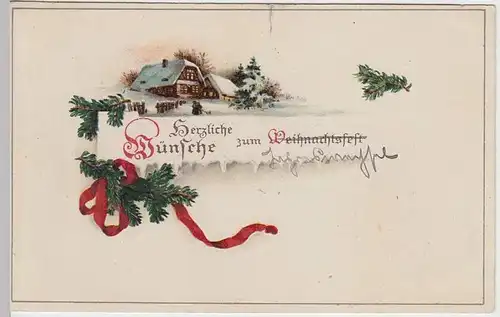 Herzliche
Wünsche zum Weihnachtsfest